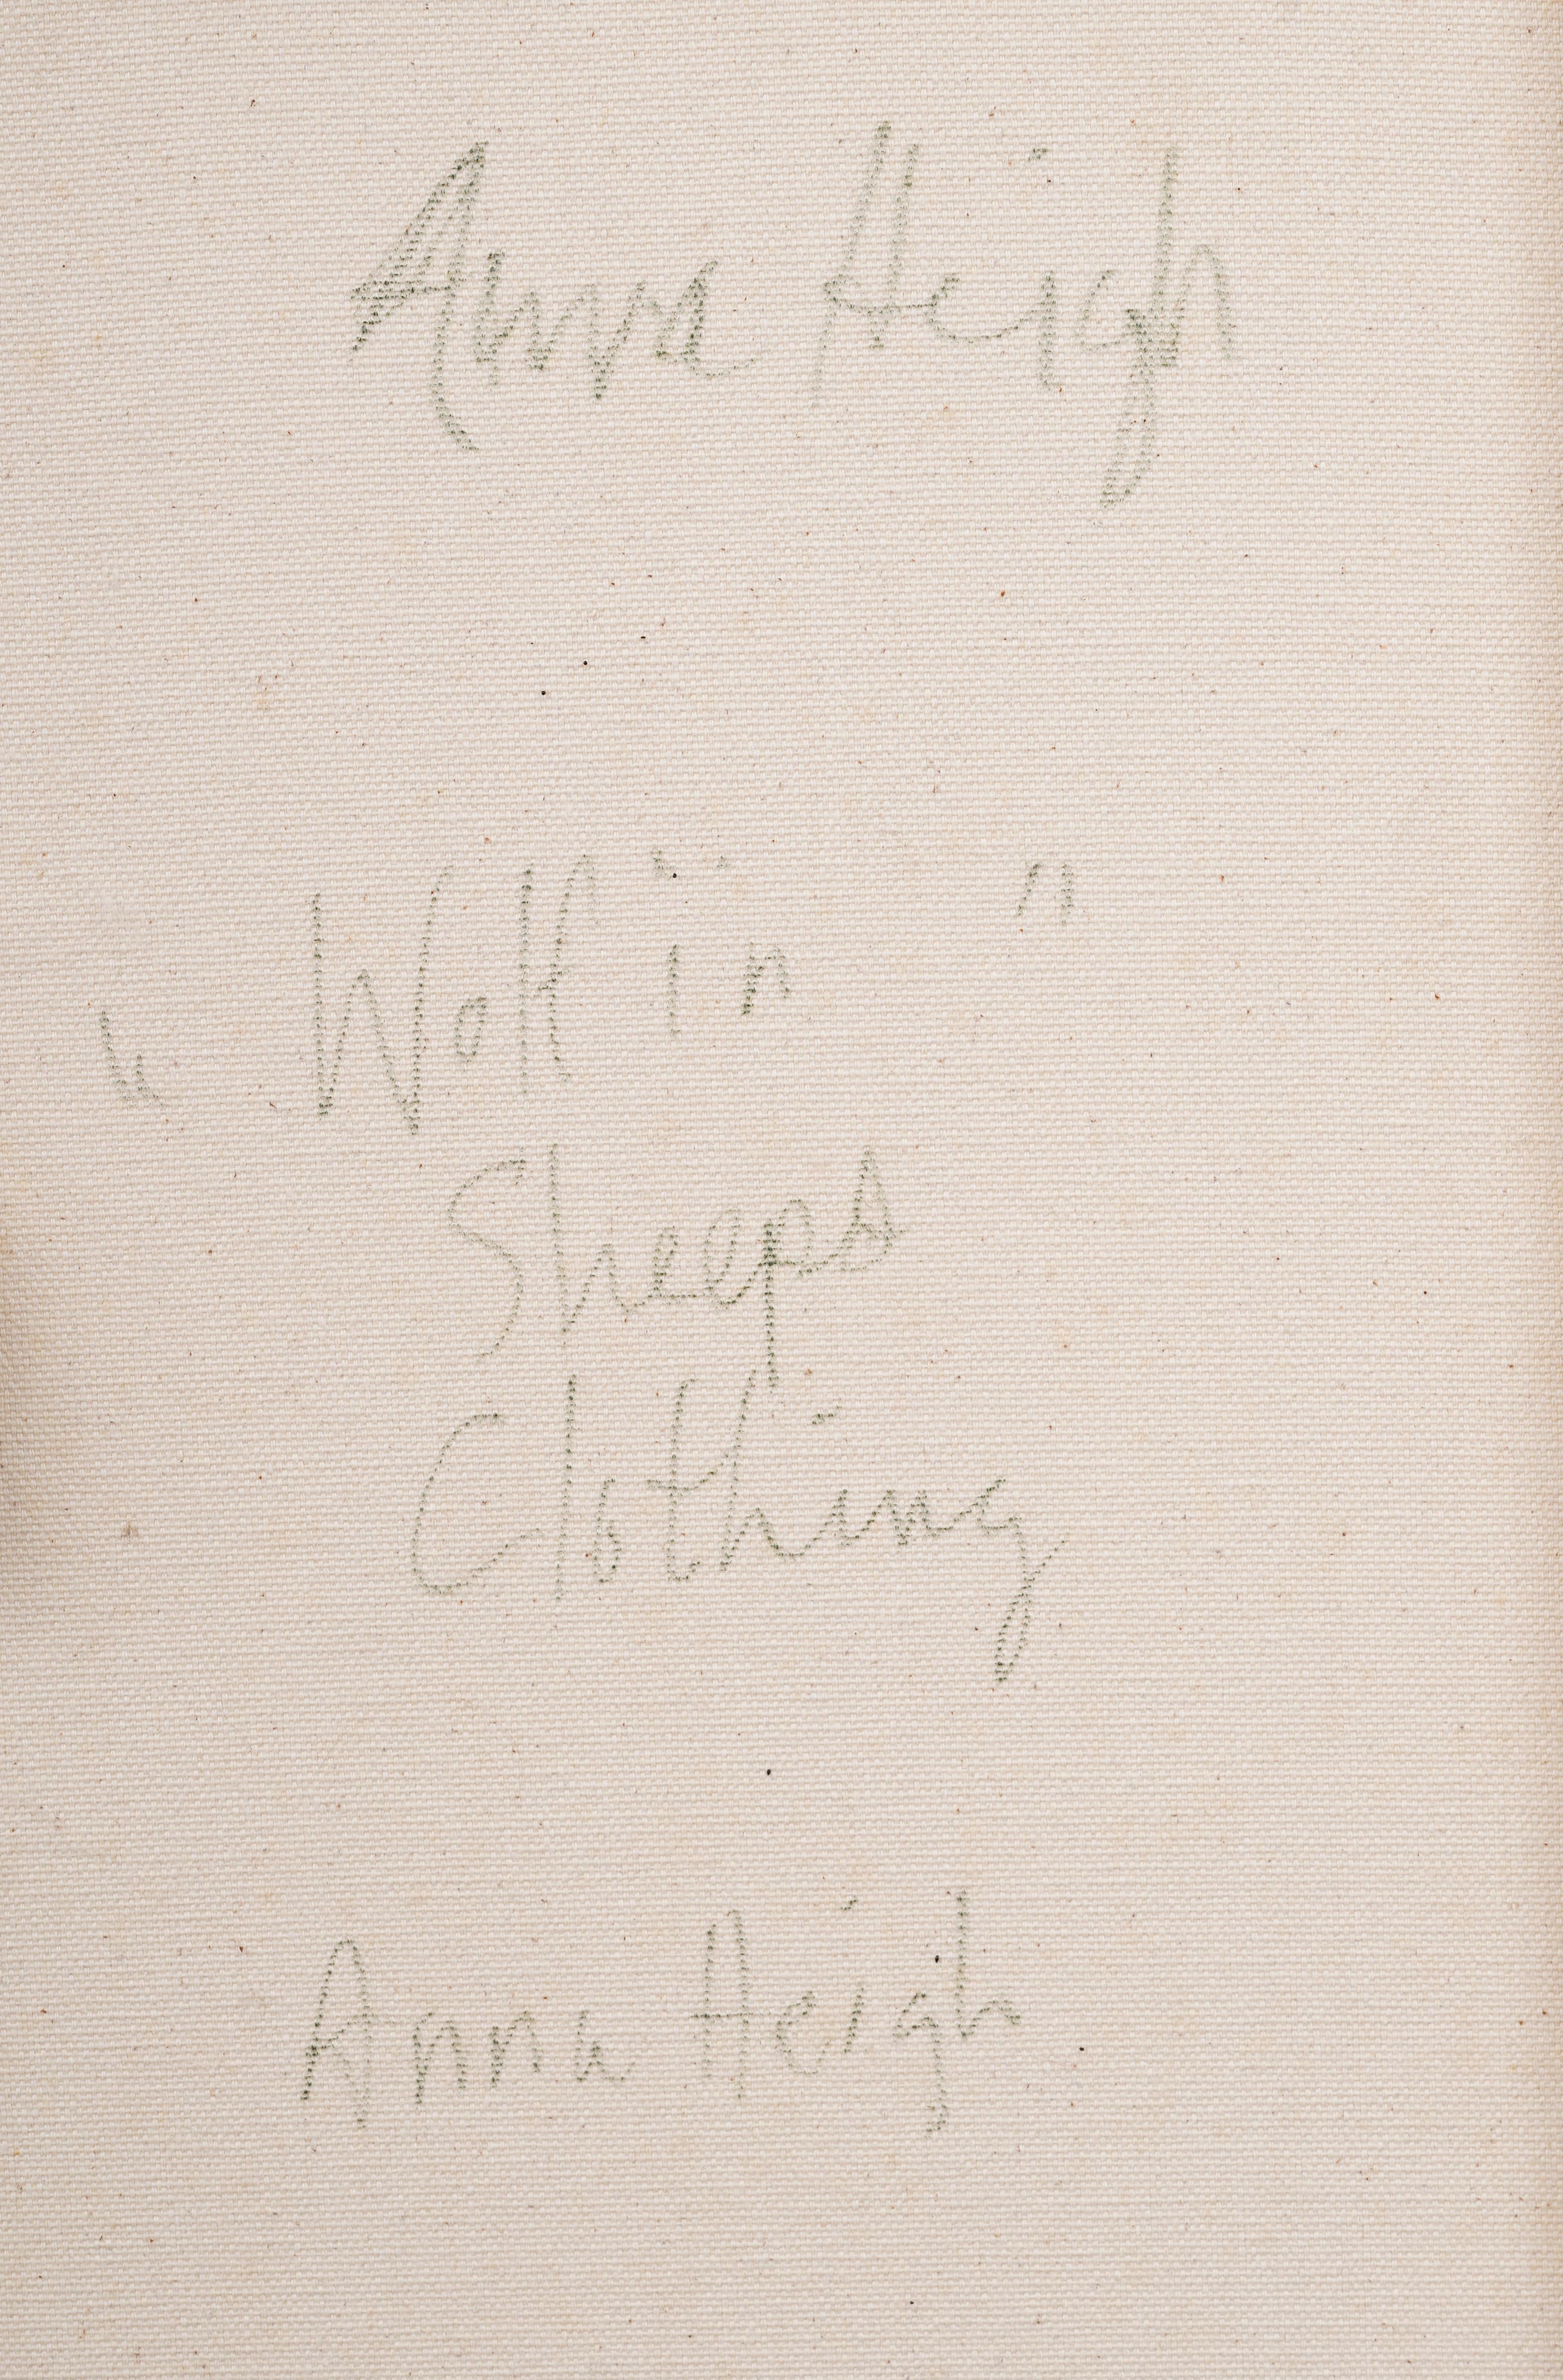 Anna Heigh
„ Wolf in "
Sheeps
Clothing
Anna Heigh